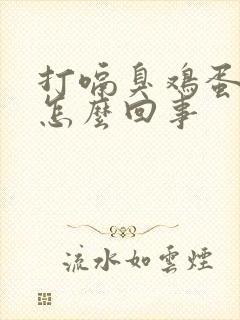 打嗝臭鸡蛋
怎麼回事
流水如雲煙